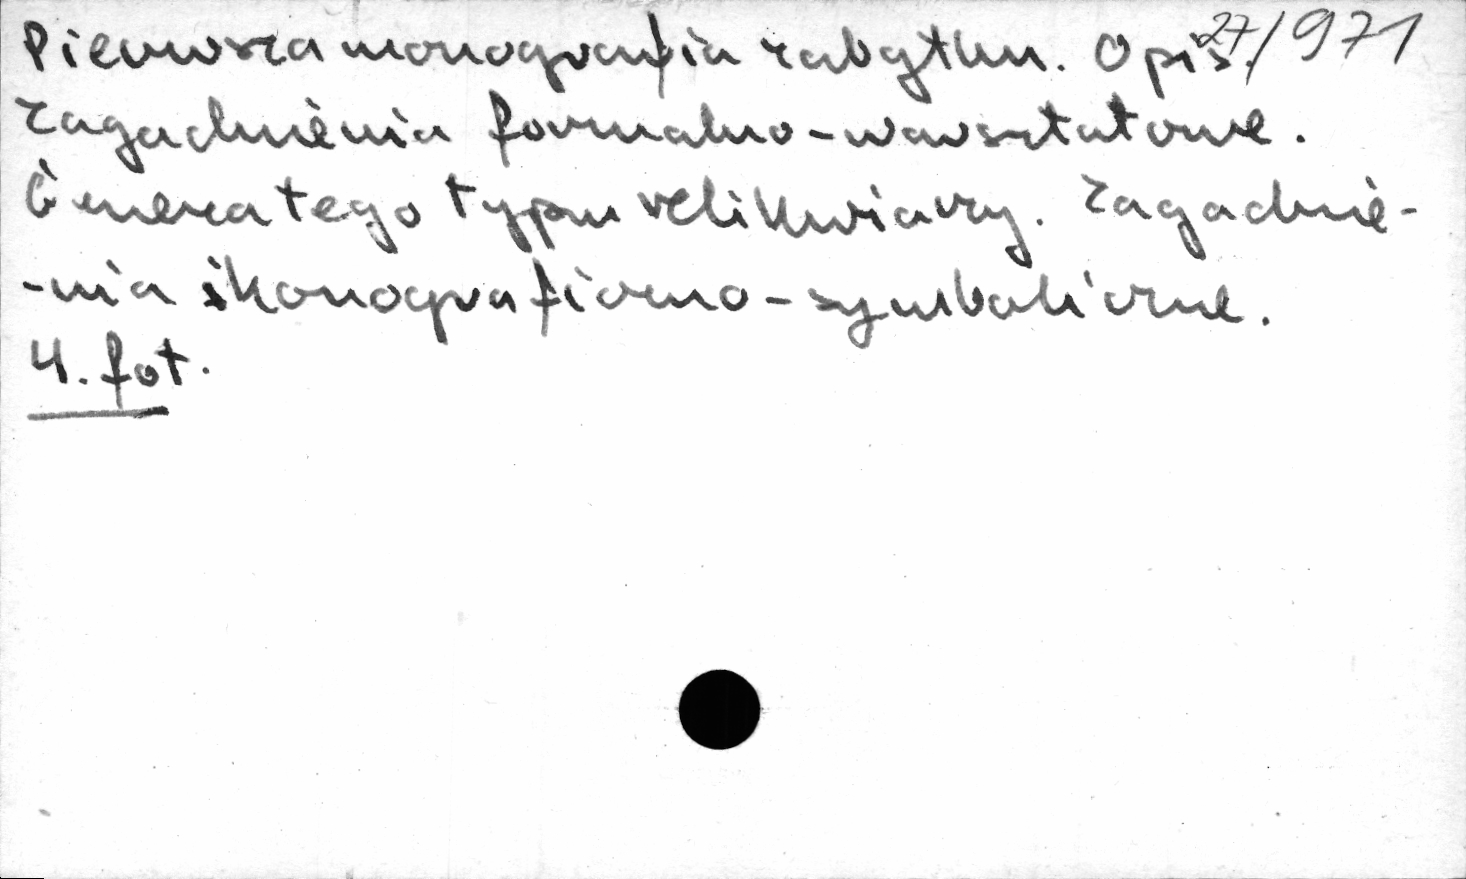 Pierwsza monografia zabytku. Opis. 27/971
Zagadnienia formalno-warsztatowe.
Geneza tego typu relikwiarzy. Zagadnie-
-nia ikonograficzno-symboliczne.
4. fot.